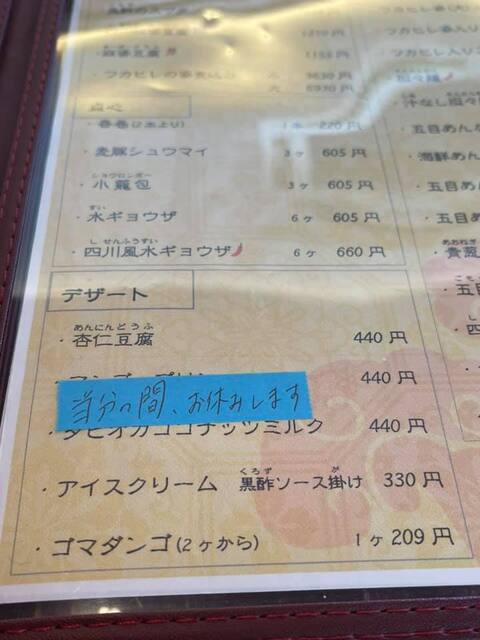 1210円
麻婆豆腐 1155円
フカヒレの姿煮込み 小 3630円
大 6970円
点心
・春巻(2本より) 1本 220円
・麦豚シュウマイ 3ヶ 605円
ショウロンポー
・小籠包 3ヶ 605円
すい
・水ギョウザ 6ヶ 605円
しせんふうすい
・四川風水ギョウザ 6ヶ 660円
デザート
あんにんどうふ
・杏仁豆腐 440円
440円
当分の間、お休みします
・タピオカココナッツミルク 440円
くろず が
・アイスクリーム 黒酢ソース掛け 330円
・ゴマダンゴ(2ヶから) 1ヶ 209円
・フカヒレ入り
・担々麺
・汁なし担々麺
・五目あん
・海鮮あん
・五目
・五目
あおねぎ
・青葱
・五目